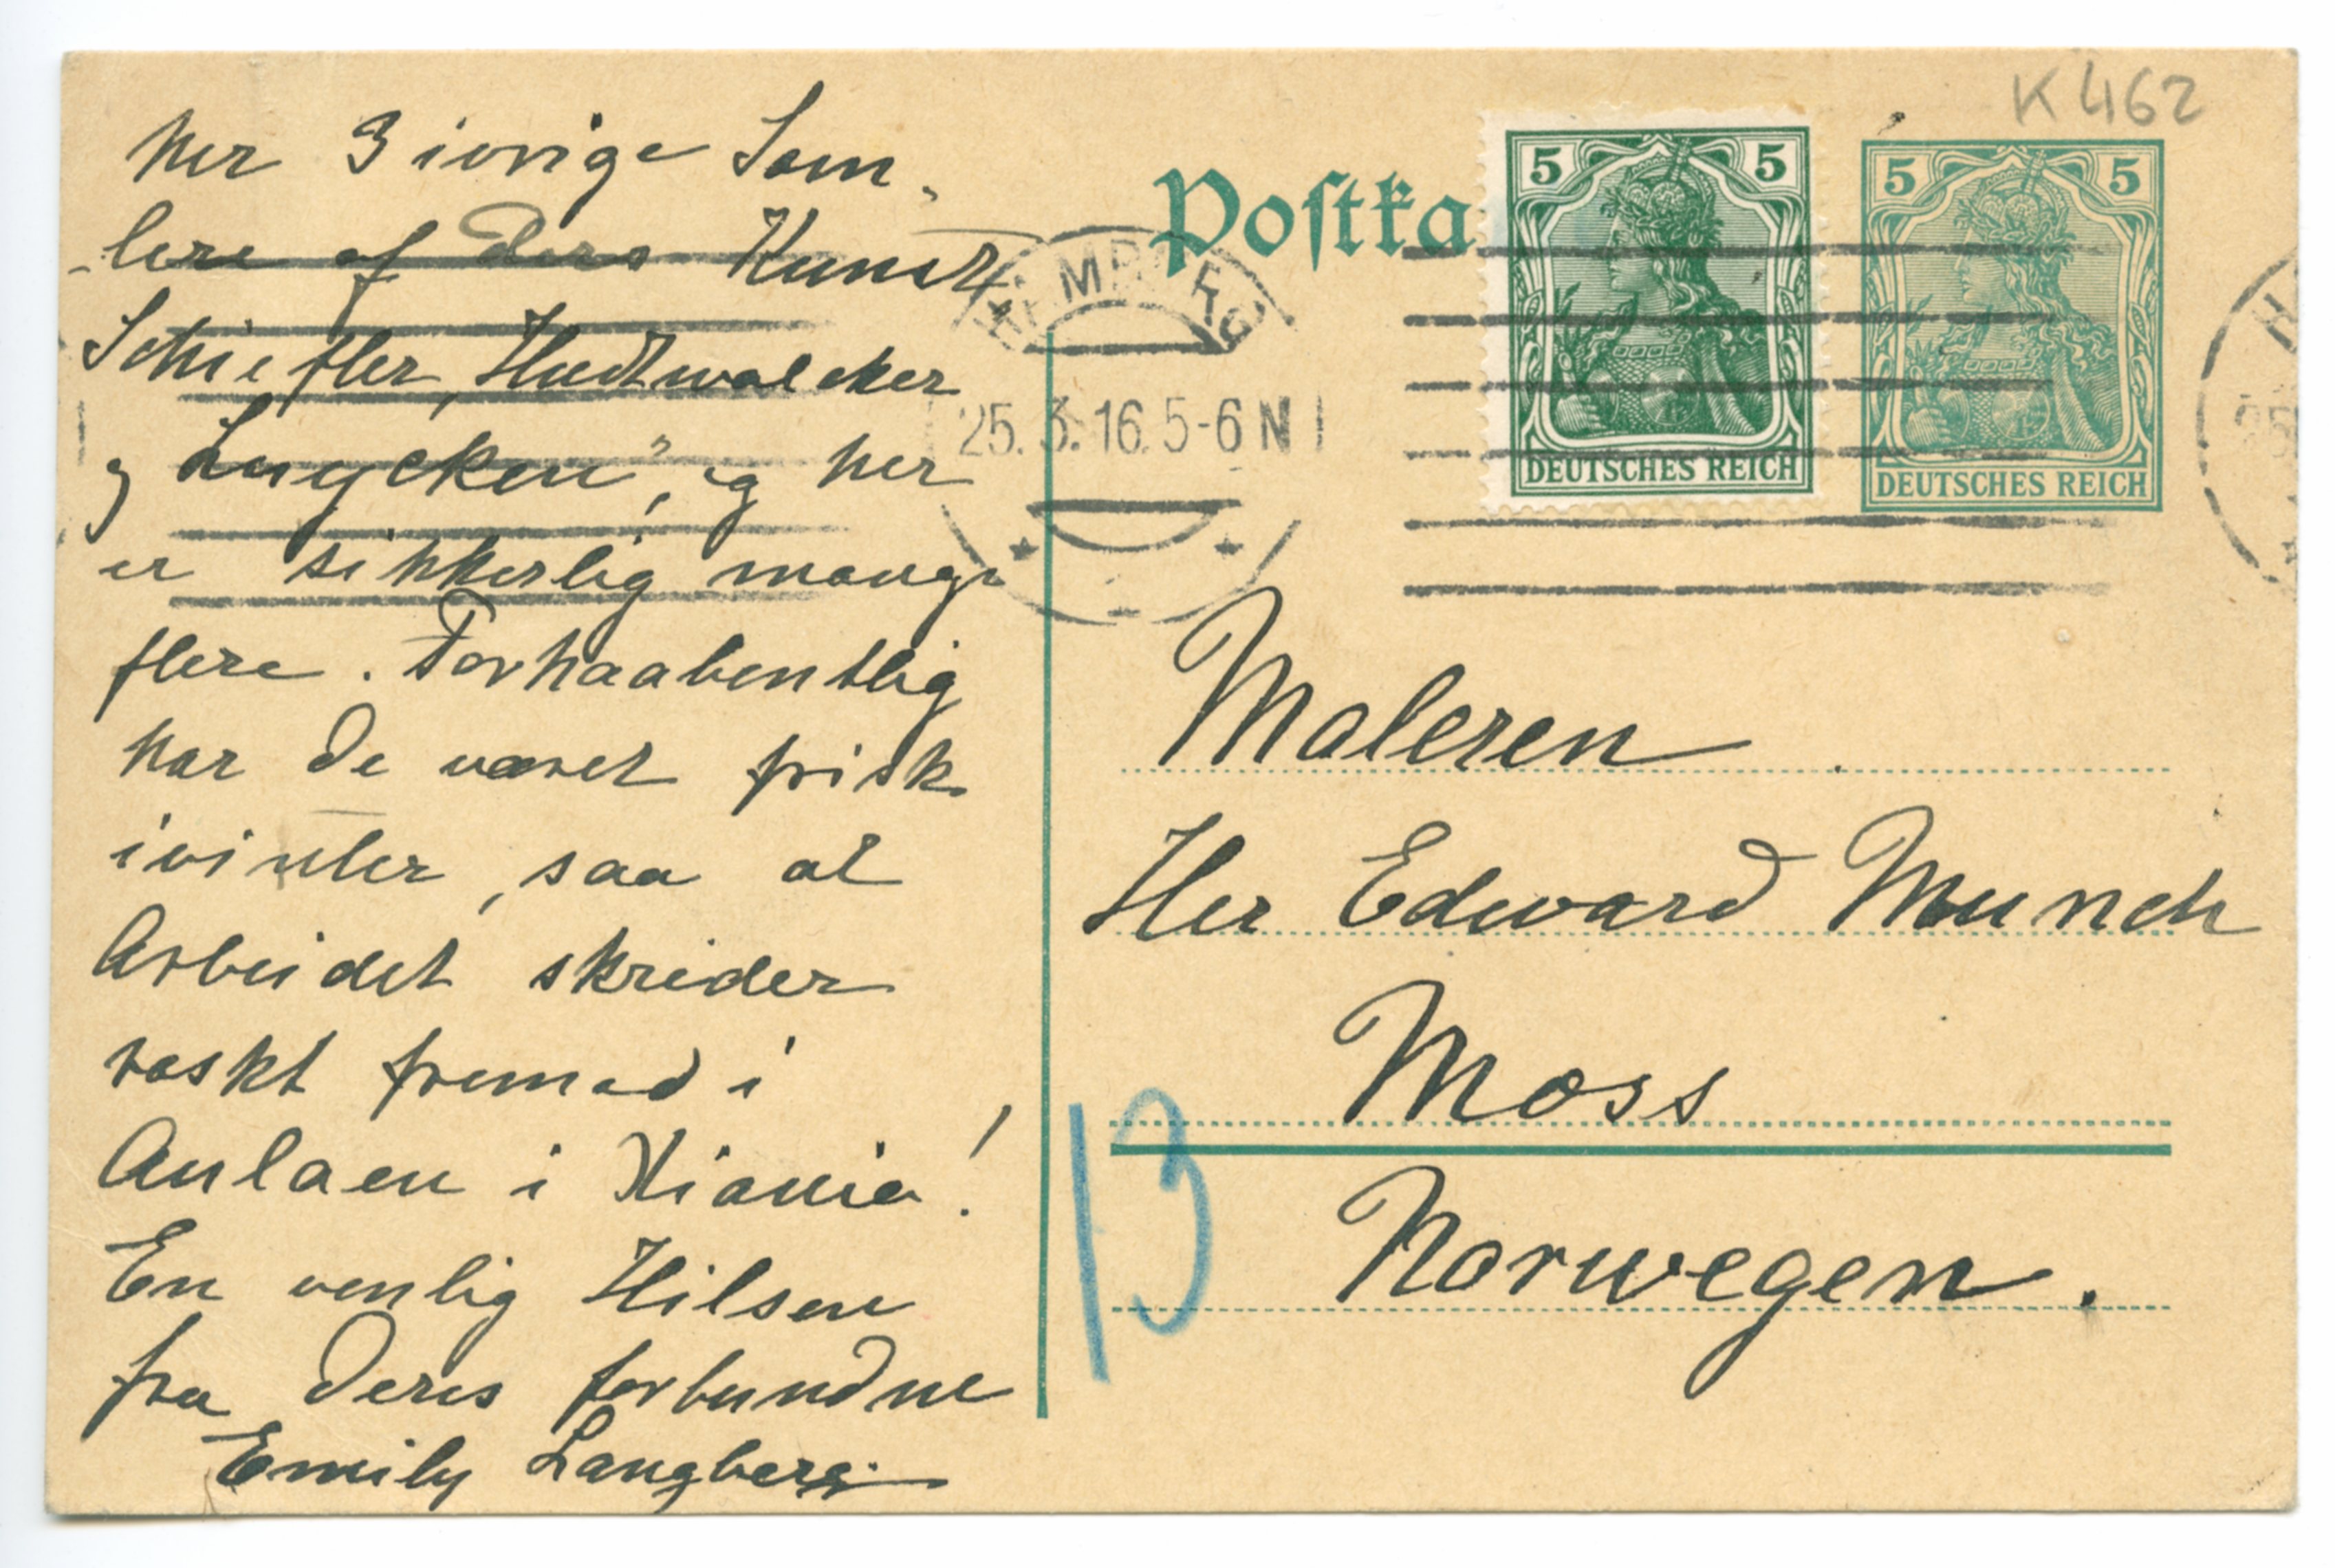 her 3 ivrige Sam-
-lere af Deres Kunst
Schiefler, Hudtwalcker
og Luycken", og her
er sikkerlig mange
flere. Forhaabentlig
har De været frisk
ivinter, saa at
Arbeidet skrider
raskt fremad i
Aulaen i Kiania!
En venlig Hilsen
fra Deres forbundne
Emily Langberg.
K 462
Postka
5 5
DEUTSCHES REICH
5 5
DEUTSCHES REICH
HAMBURG
25.3.16.5-6 N
Maleren
Her Edward Munch
Moss
Norwegen.
13